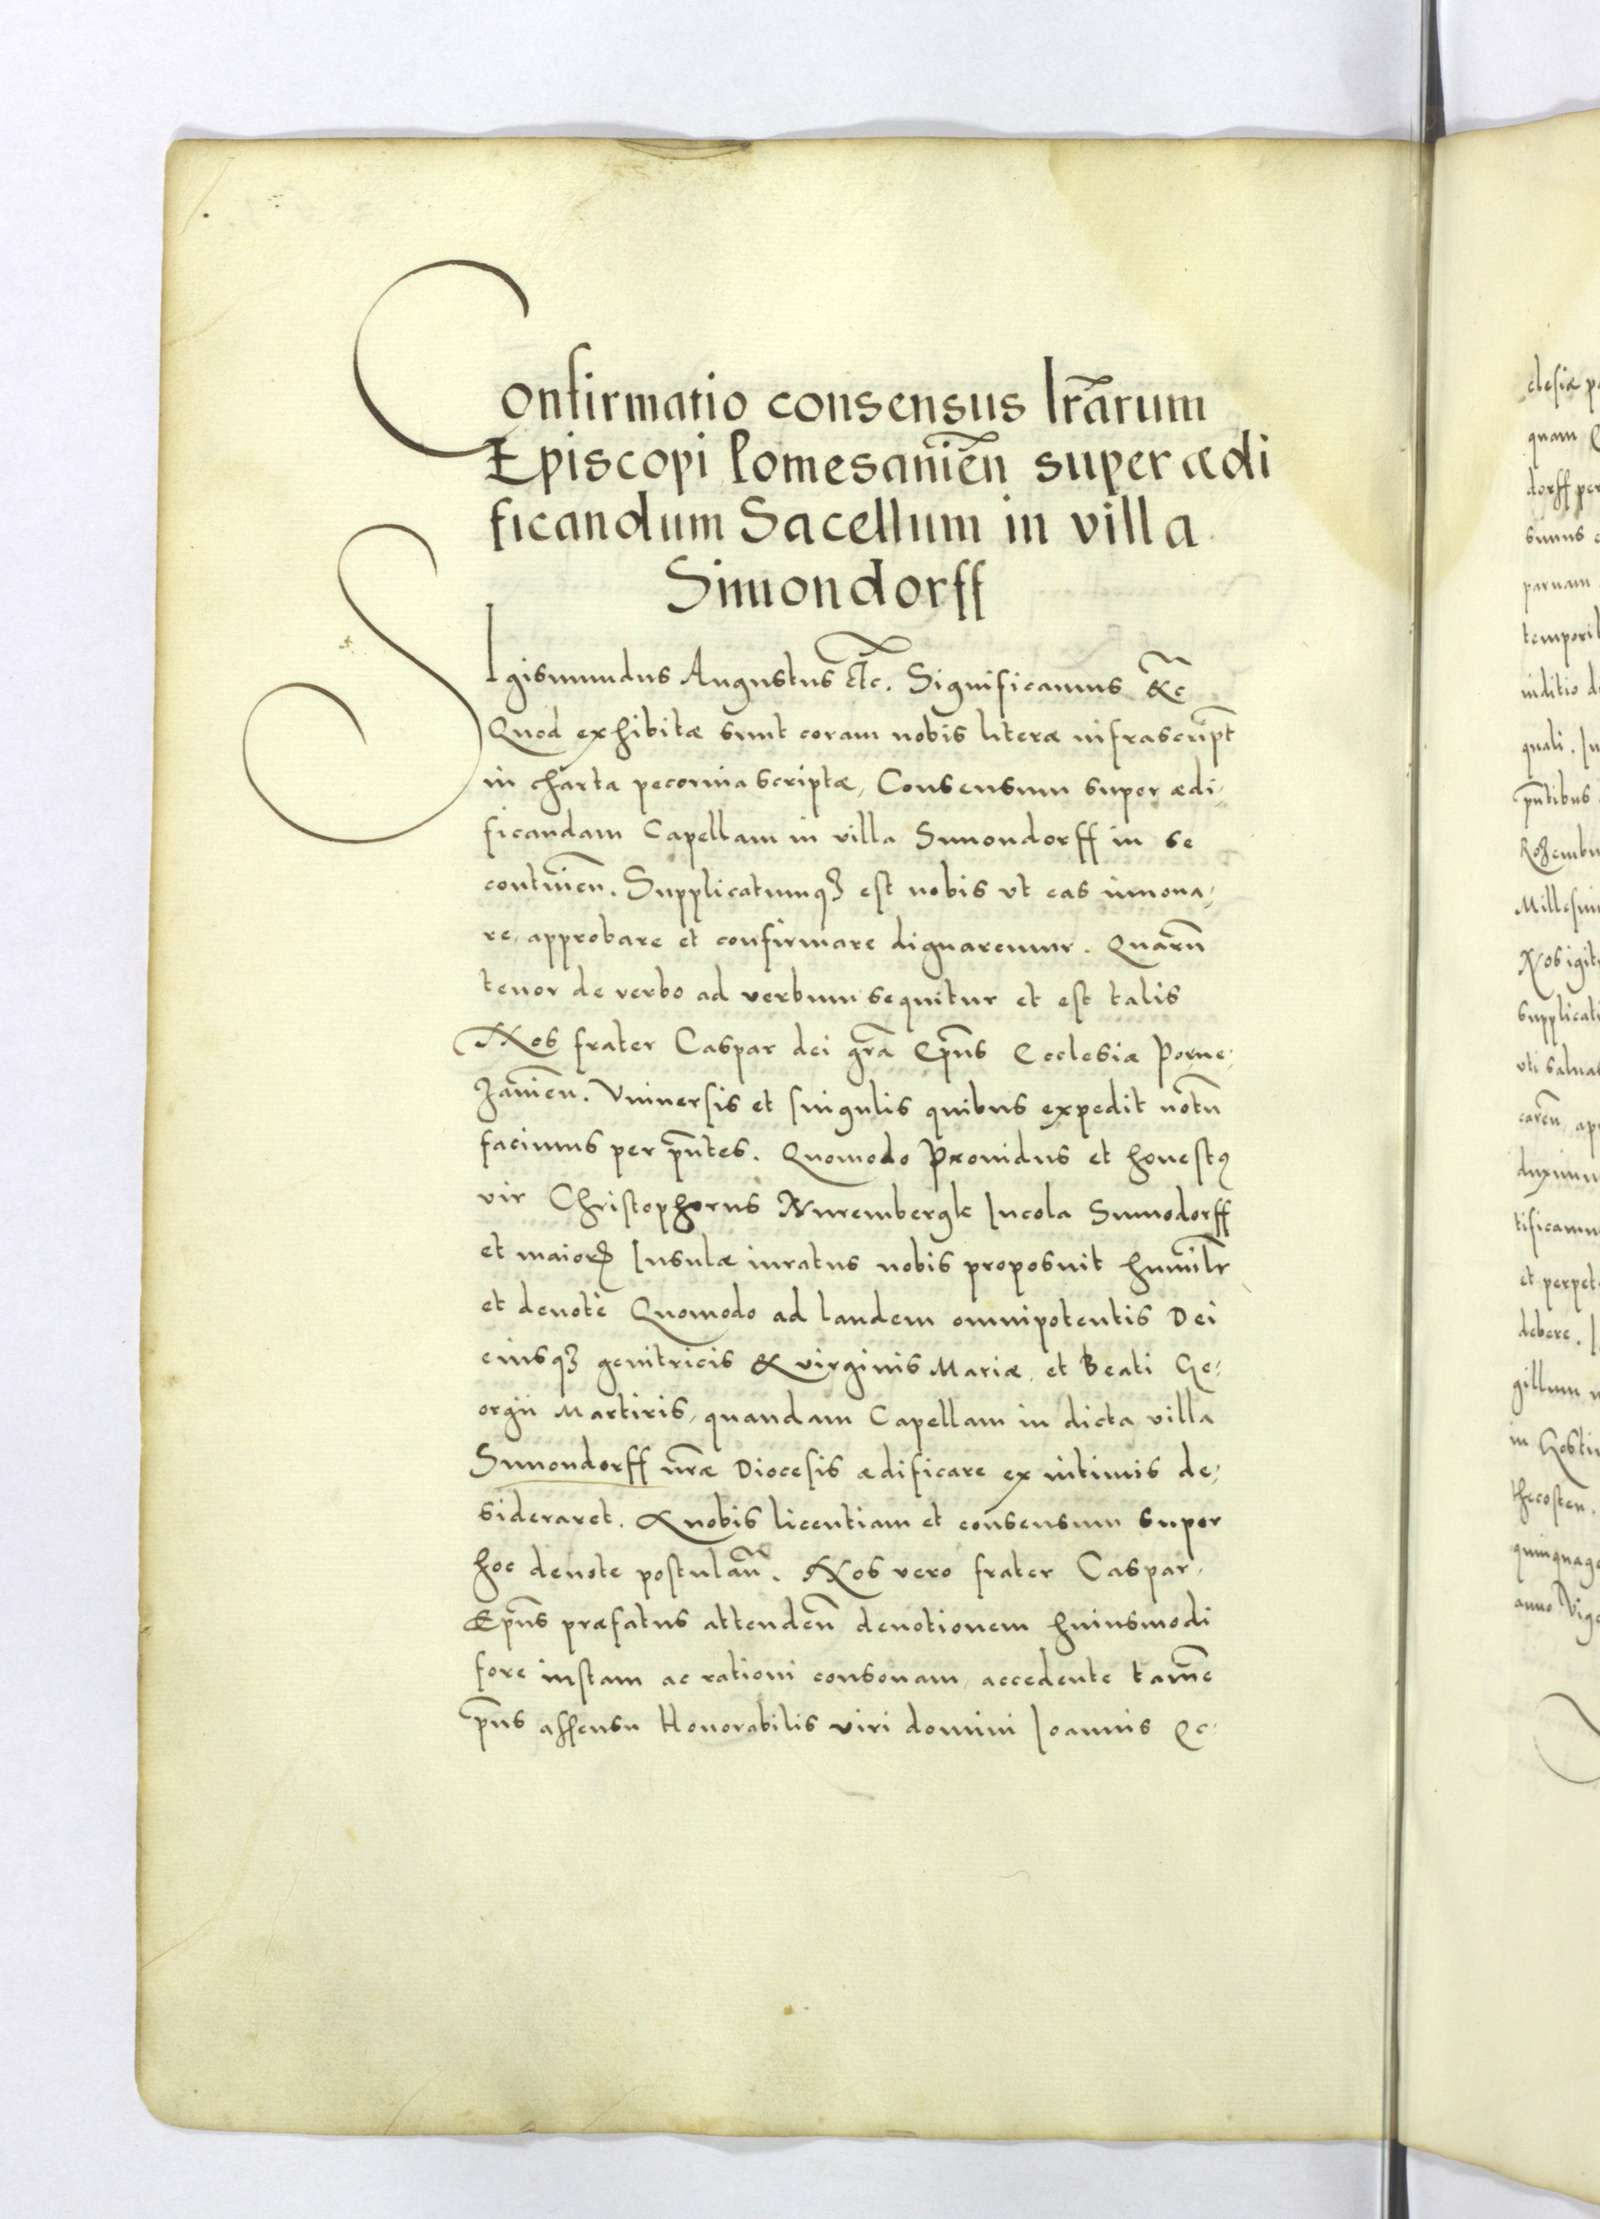 Confirmatio consensus lr̃arum
Episcopi Pomesanień super ædi
ficandum Sacellum in villa
Simondorff
SIgismundus Augustus etc. Significamus &c
Quod exhibitæ sunt coram nobis literæ infrascript̃
in charta pecorina scriptæ, Consensum super ædi-
ficandam Capellam in villa Simondorff in se
continen̄. Supplicatumqꝫ est nobis vt eas innoua-
re, approbare et confirmare dignaremur. Quarū
tenor de verbo ad verbum sequitur et est talis
Nos frater Caspar dei gr̃a Ep̃us Ecclesiæ Pome-
zanien̄. Vniuersis et singulis quibus expedit notū
facimus per p̃ntes. Quomodo Prouidus et honestꝰ
vir Christophorus Nurembergk Incola Simodorff
et maiorꝭ Insulæ iuratus nobis proposuit humilr̃
et deuotè Quomodo ad laudem omnipotentis Dei
eiusqꝫ genitricis & virginis Mariæ, et Beati Ge-
orgii Martiris, quandam Capellam in dicta villa
Simondorff nr̃æ Diocesis ædificare ex intimis de-
sideraret. & nobis licentiam et consensum super
hoc deuote postulaū. Nos vero frater Caspar,
Ep̃us præfatus attenden̄ deuotionem huiusmodi
fore iustam ac rationi consonam, accedente tamē
p̃us assensu Honorabilis viri domini Ioannis Ec-
clesiæ
quam
dorff per
sumus
paruam
quali.
p̃ntibus
Nos
et perpet
debere.
gillum
in
anno